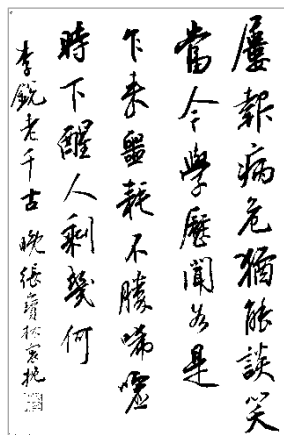 屢報病危猶能談笑
當今學歷聞名是
乍來噩耗不勝唏噓
時下醒人剩幾何
李銳老千古 晚張寶林哀挽